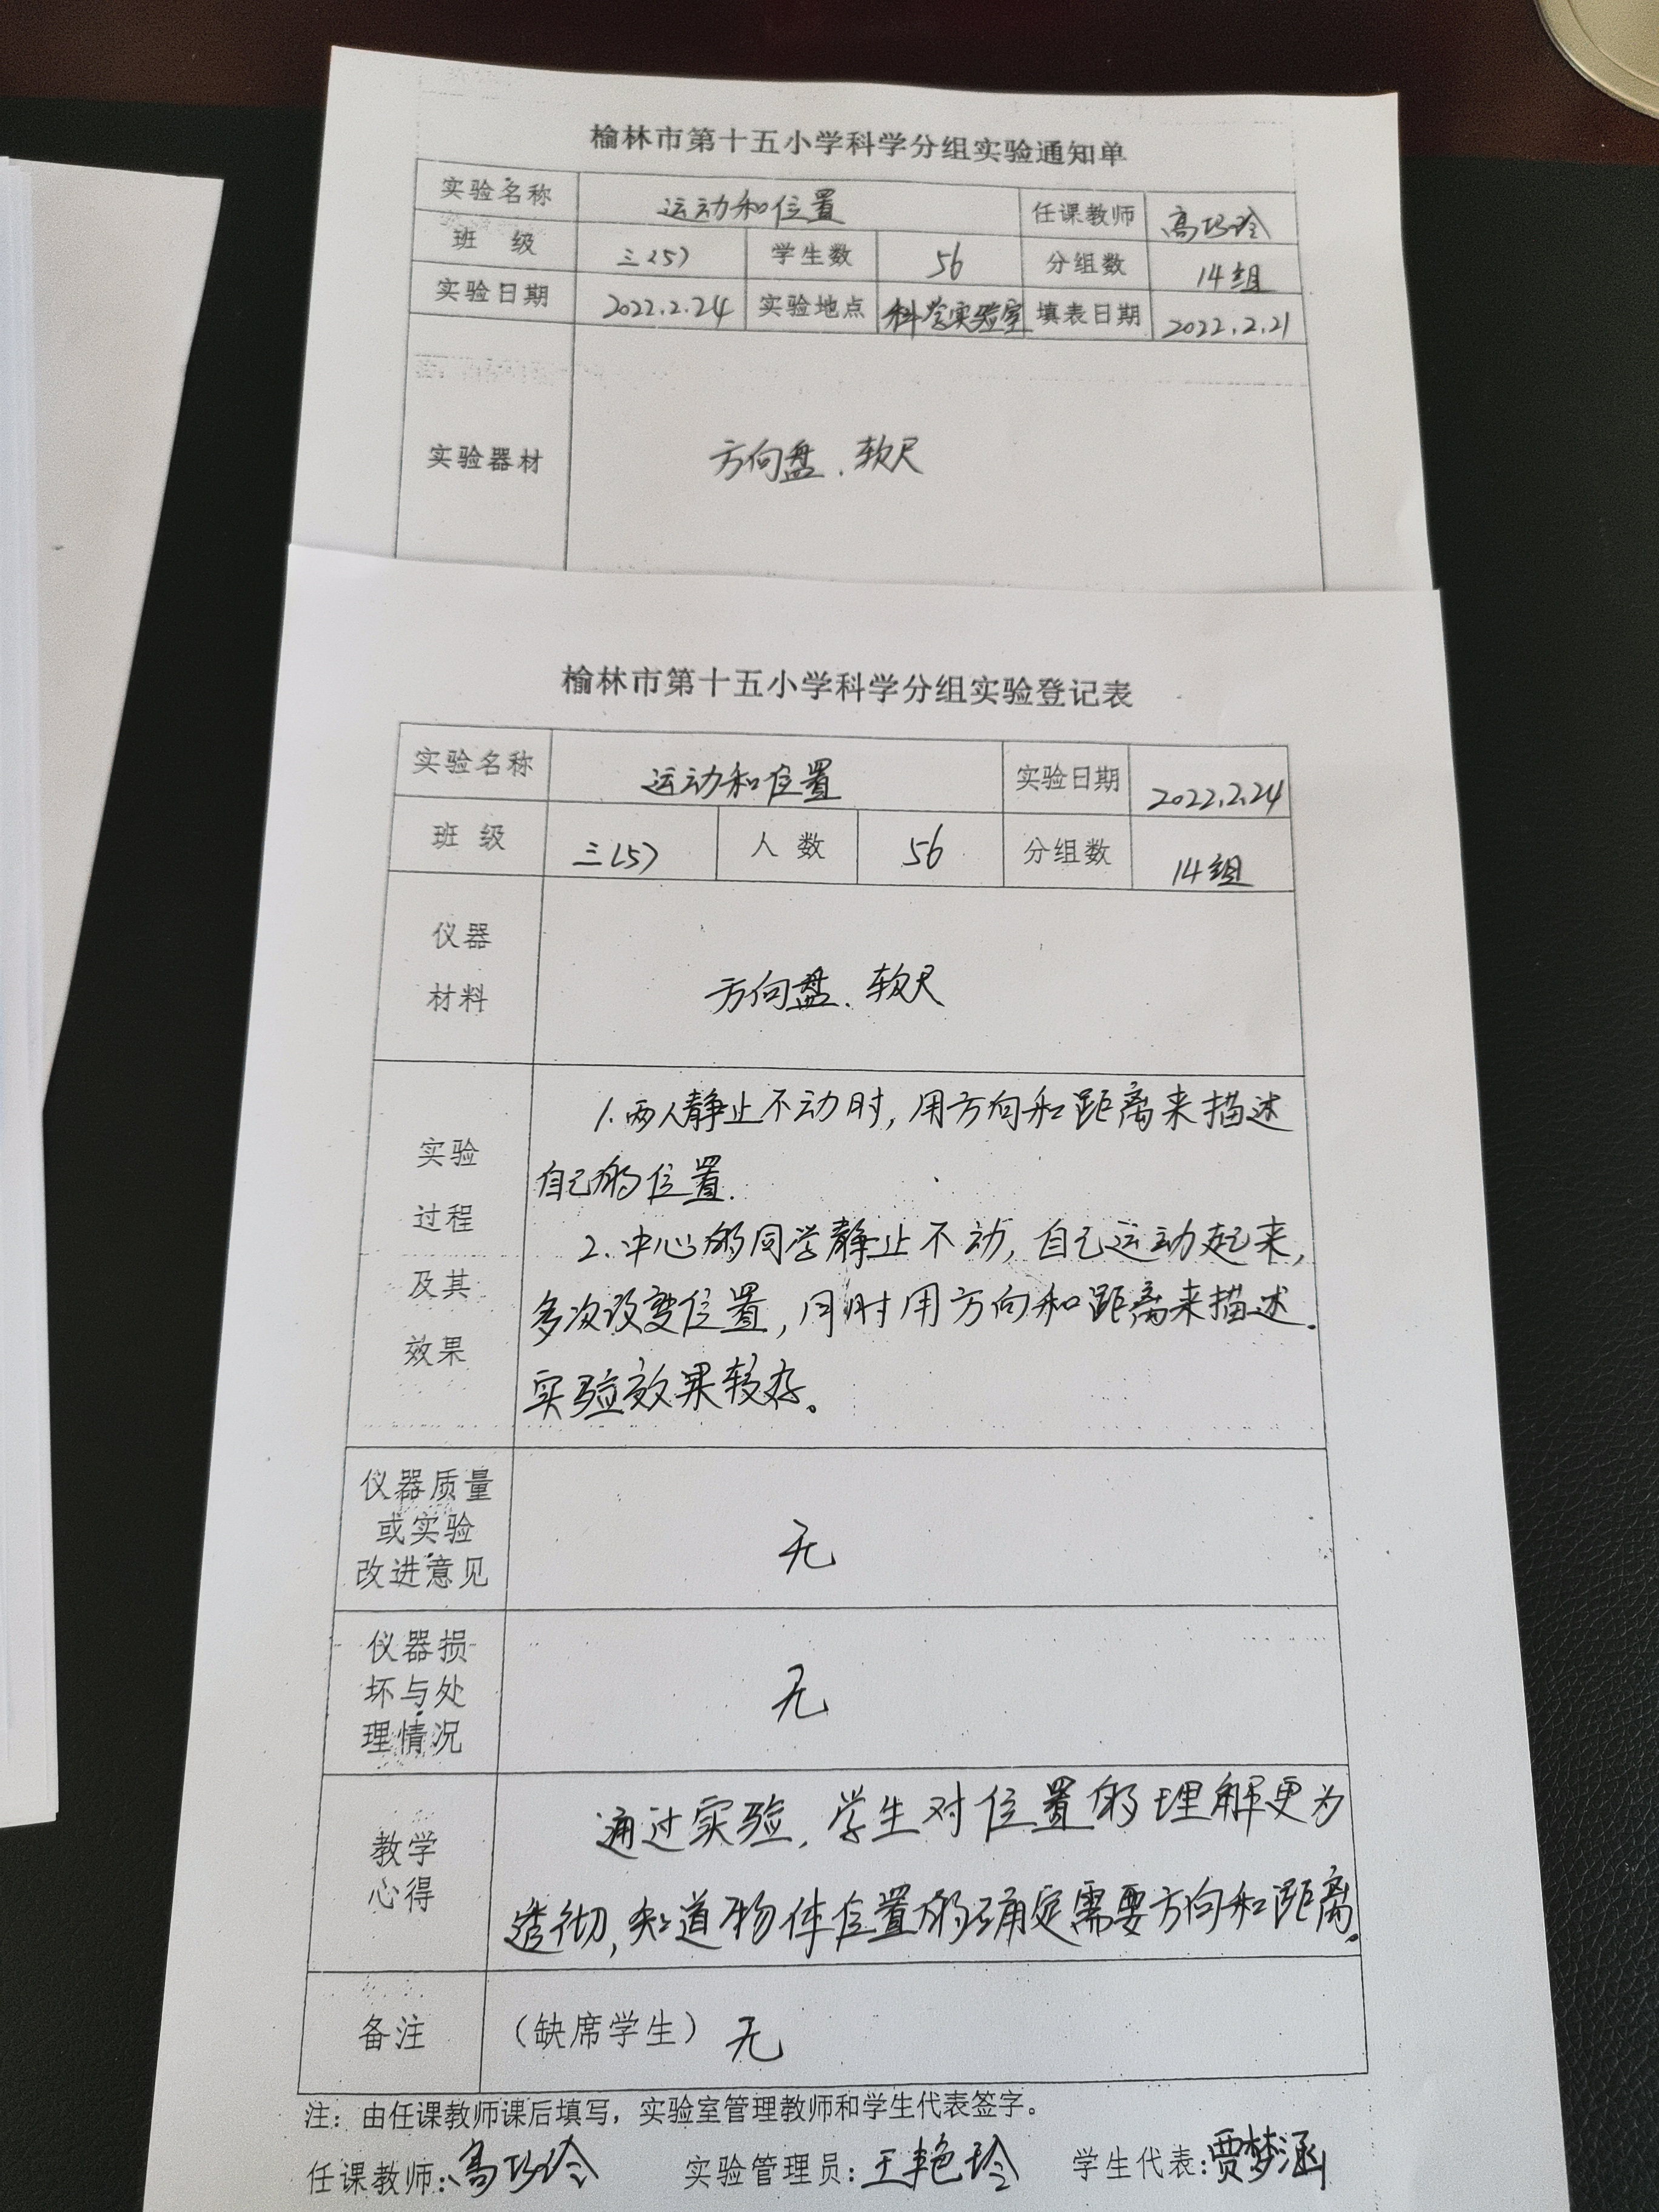 榆林市第十五小学科学分组实验通知单
实验名称 运动和位置 任课教师 高巧玲
班 级 三(5) 学生数 56 分组数 14组
实验日期 2022.2.24 实验地点 科学实验室 填表日期 2022.2.21
实验器材 方向盘、软尺
榆林市第十五小学科学分组实验登记表
实验名称 运动和位置 实验日期 2022.2.24
班 级 三(5) 人 数 56 分组数 14组
仪器
材料
方向盘、软尺
实验
过程
及其
效果
1.两人静止不动时,用方向和距离来描述
自己的位置.
2.中心的同学静止不动,自己运动起来,
多次改变位置,同时用方向和距离来描述.
实验效果较好。
仪器质量
或实验
改进意见
无
仪器损
坏与处
理情况
无
教学
心得
通过实验,学生对位置的理解更为
透彻,知道物体位置的确定需要方向和距离.
备注 (缺席学生) 无
注:由任课教师课后填写,实验室管理教师和学生代表签字。
任课教师:高巧玲 实验管理员:王艳玲 学生代表:贾梦涵